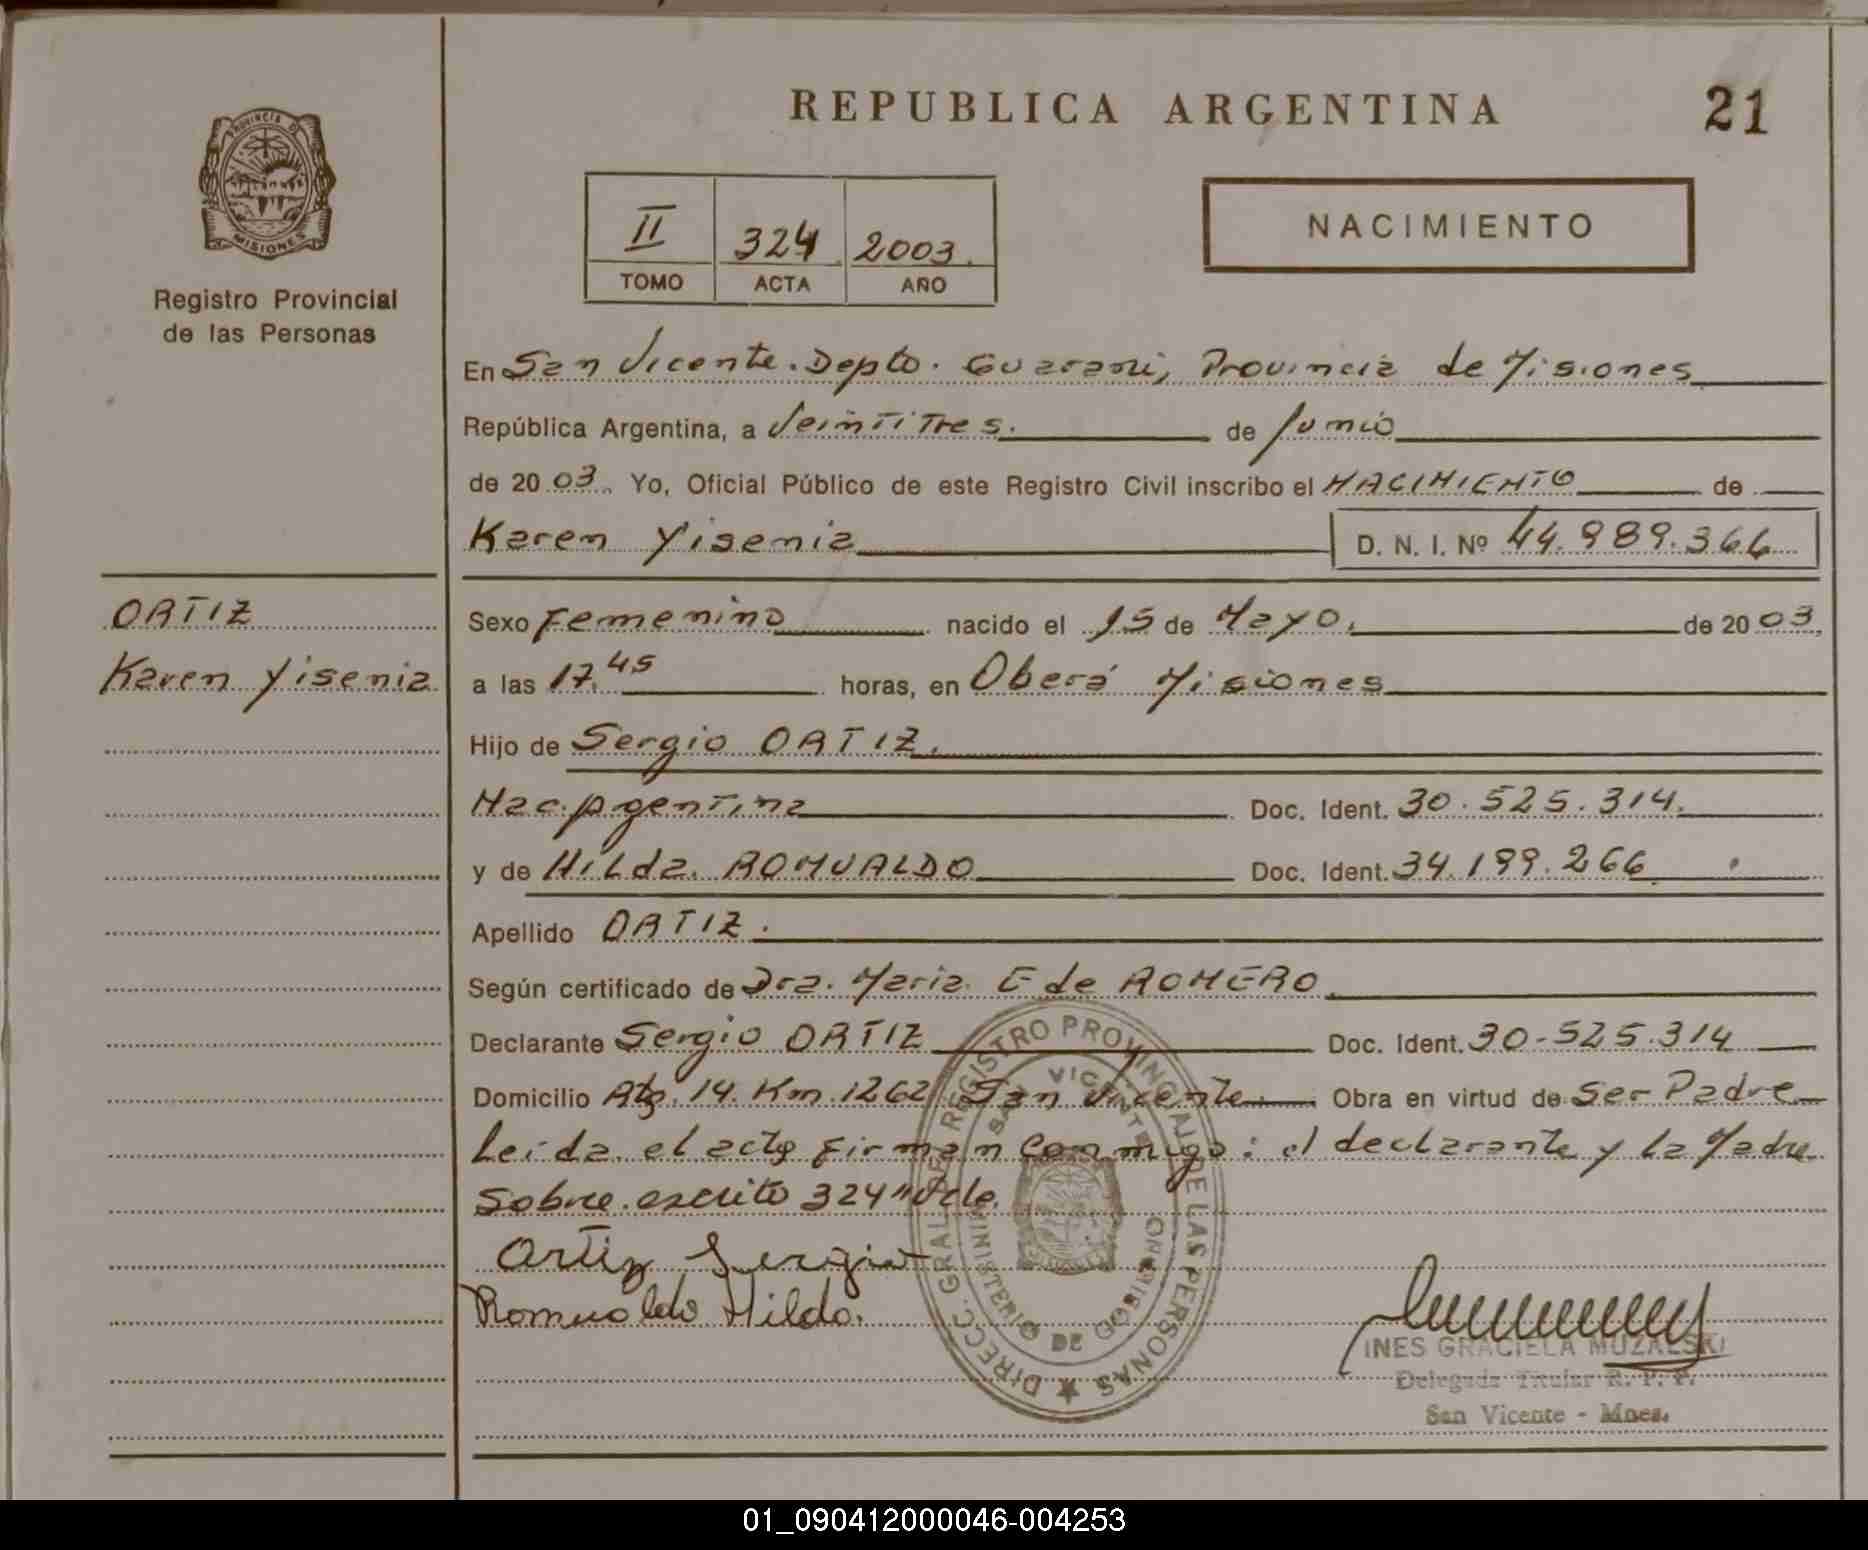 REPUBLICA ARGENTINA
21
PROVINCIA D
MISIONES
Registro Provincial
de las Personas
II 324 2003.
TOMO ACTA AÑO
NACIMIENTO
En San Vicente. Depto. Guarani, Provincia de Misiones
República Argentina, a Veintitres. de Junio
de 2003. Yo, Oficial Público de este Registro Civil inscribo el NACIMIENTO de
Karen Yisenia D. N. I. Nº 44.989.366
ORTIZ
Karen Yisenia
Sexo Femenino nacido el 15 de Mayo. de 2003.
a las 17.45 horas, en Oberá Misiones
Hijo de Sergio ORTIZ.
Nac. Argentina Doc. Ident. 30.525.314.
y de Hilda. ROMUALDO Doc. Ident. 34.199.266
Apellido ORTIZ.
Según certificado de Dra. Maria. E de ROMERO
Declarante Sergio ORTIZ Doc. Ident. 30-525.314
Domicilio Rta. 14. Km. 1262 San Vicente. Obra en virtud de Ser Padre
Leída el acta firman conmigo: el declarante y la Madre
Sobre escrito 324 "Vale.
Ortiz Sergio
Romualdo Hilda.
DIRECC. GRAL. DE REGISTRO PROVINCIAL DE LAS PERSONAS
SAN VICENTE
MINISTERIO DE GOBIERNO
INES GRACIELA MUZALSKI
Delegada Titular R. P. P.
San Vicente - Mnes.
01_090412000046-004253